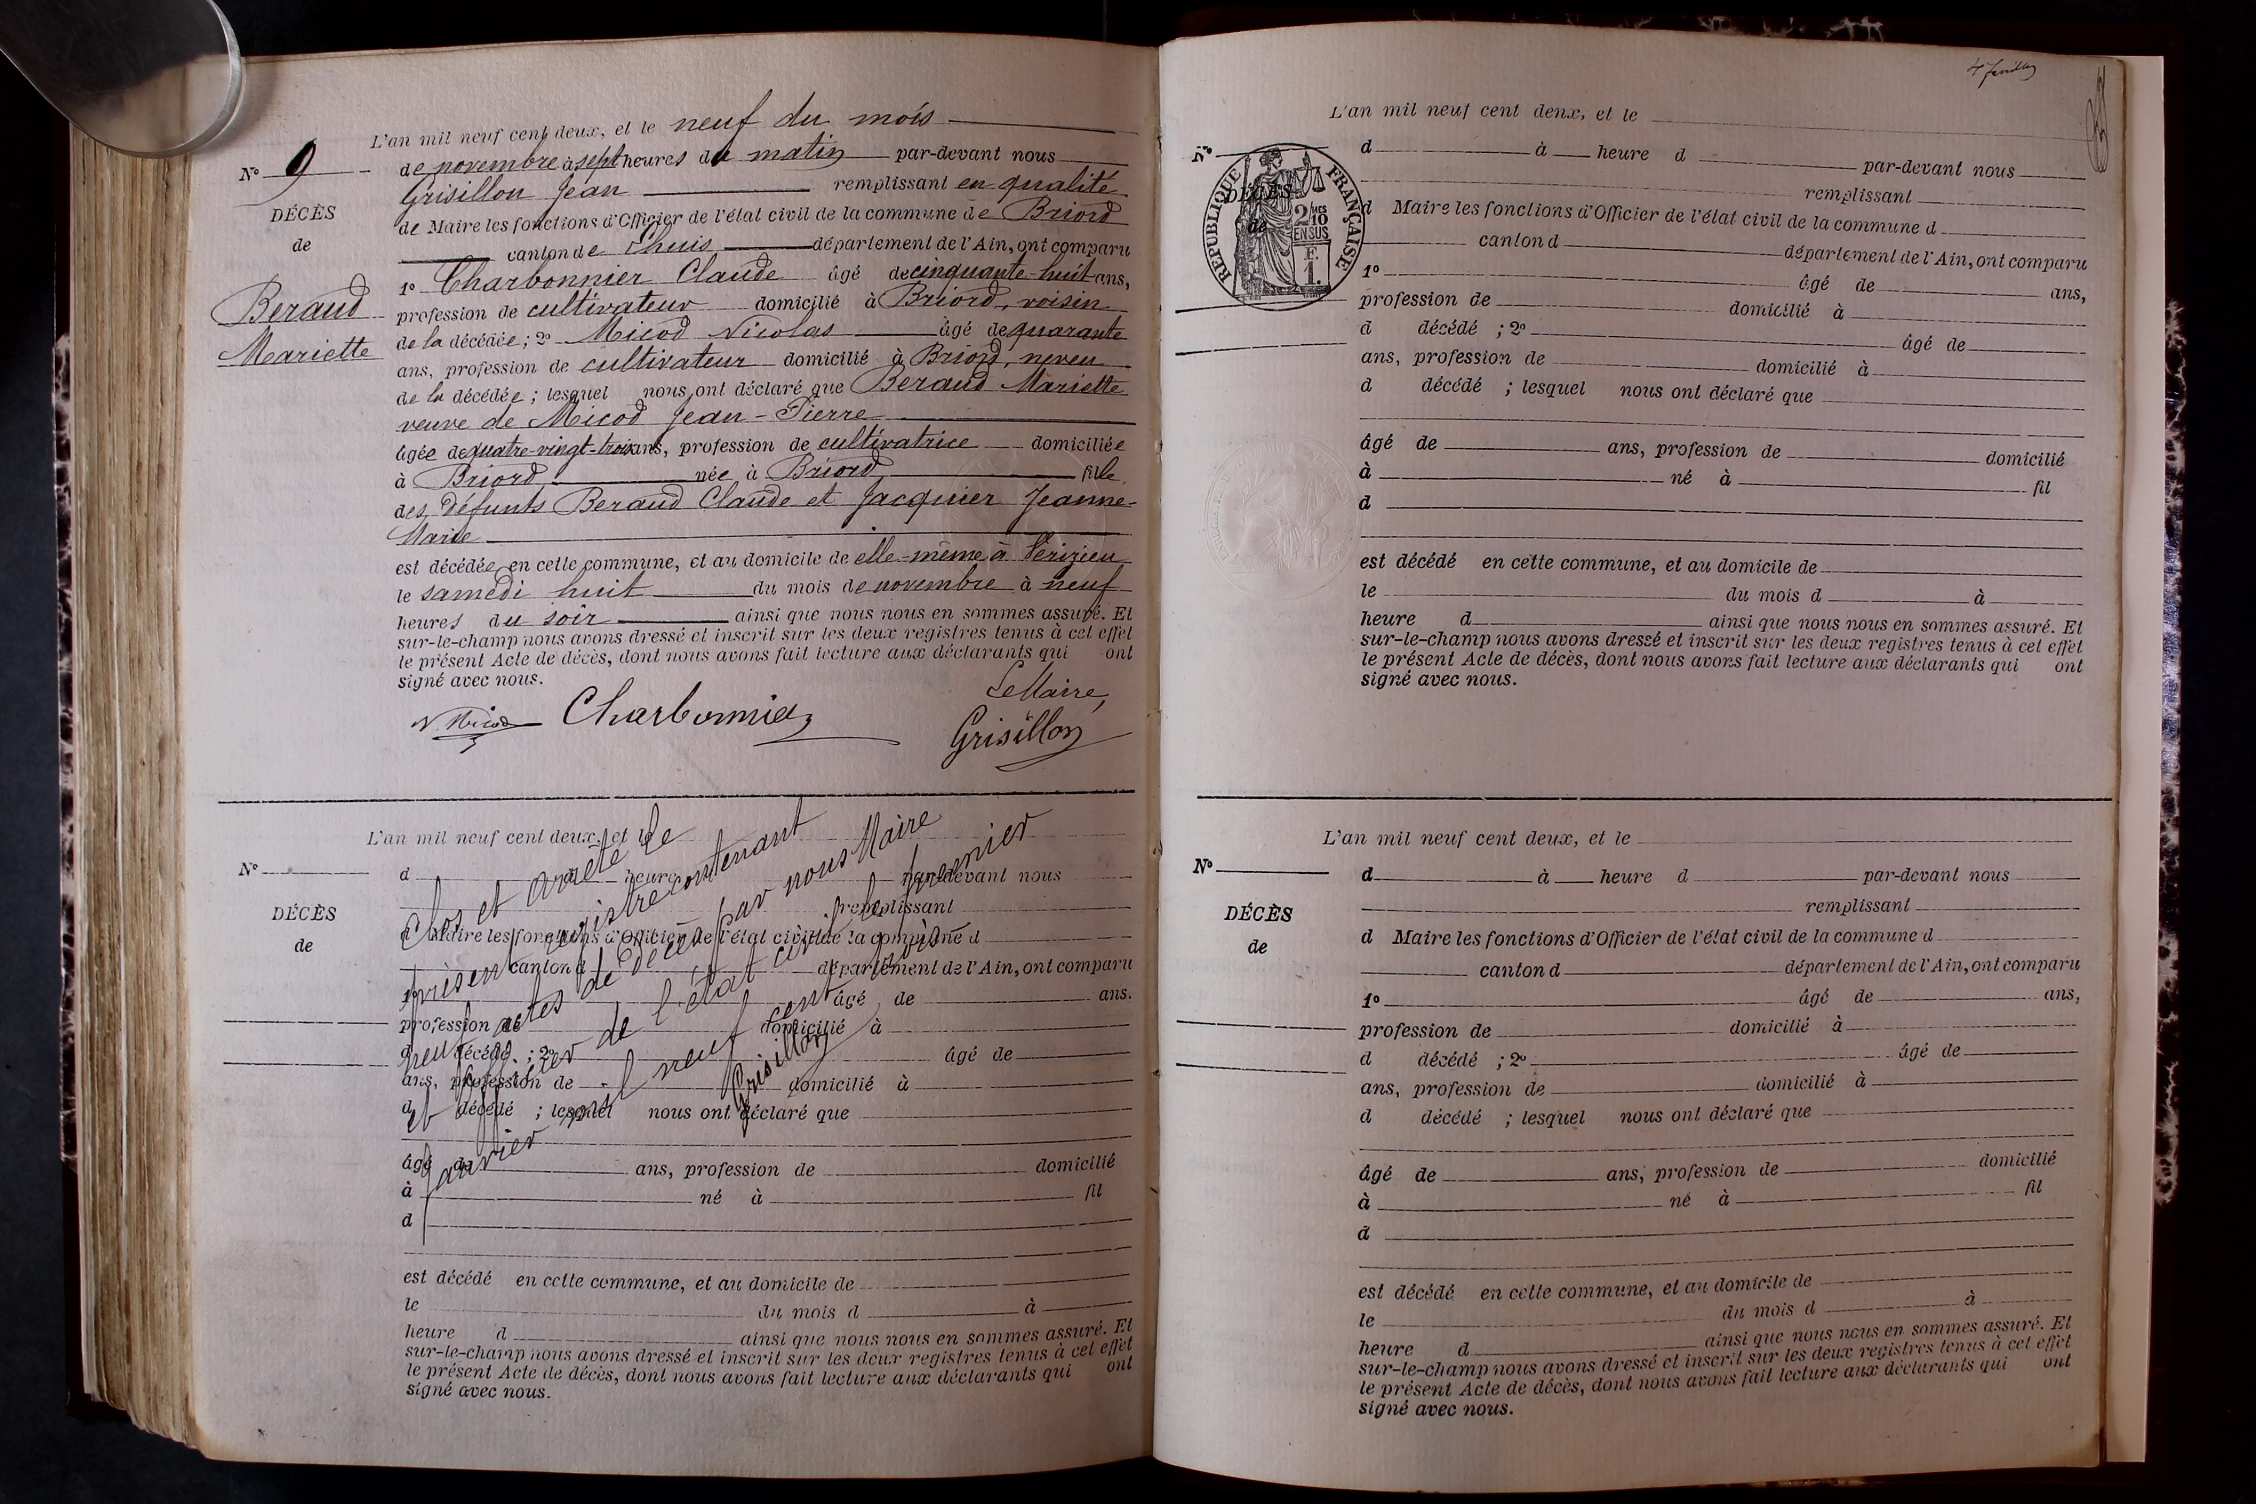 L'an mil neuf cent deux, et le neuf du mois
N° 9
de novembre à sept heures du matin par-devant nous
Grisillon Jean remplissant en qualité
DÉCÈS
de Maire les fonctions d'Officier de l'état civil de la commune de Briord
de
canton de Lhuis département de l'Ain, ont comparu
1° Charbonnier Claude âgé de cinquante-huit ans,
Beraud
profession de cultivateur domicilié à Briord, voisin
Mariette
de la décédée ; 2° Micod Nicolas âgé de quarante
ans, profession de cultivateur domicilié à Briord, neveu
de la décédée ; lesquel nous ont déclaré que Beraud Mariette
veuve de Micod Jean-Pierre
âgée de quatre-vingt-trois ans, profession de cultivatrice domiciliée
à Briord, née à Briord, fille
des défunts Beraud Claude et Jacquier Jeanne-
Marie
est décédée en cette commune, et au domicile de elle-même à Vérizieu
le samedi huit du mois de novembre à neuf
heures du soir ainsi que nous nous en sommes assuré. Et
sur-le-champ nous avons dressé et inscrit sur les deux registres tenus à cet effet
le présent Acte de décès, dont nous avons fait lecture aux déclarants qui ont
signé avec nous.
Le Maire,
N. Micod Charbonnier Grisillon
L'an mil neuf cent deux, et le
N°
d à heure par-devant nous
remplissant
DÉCÈS
d Maire les fonctions d'Officier de l'état civil de la commune d
de
canton d département de l'Ain, ont comparu
1° âgé de ans.
profession de domicilié à
d décédé ; 2° âgé de
ans, profession de domicilié à
d décédé ; lesquel nous ont déclaré que
âgé de ans, profession de domicilié
à né à fil
d
est décédé en cette commune, et au domicile de
le du mois d à
heure d ainsi que nous nous en sommes assuré. Et
sur-le-champ nous avons dressé et inscrit sur les deux registres tenus à cet effet
le présent Acte de décès, dont nous avons fait lecture aux déclarants qui ont
signé avec nous.
Clos et arrêté le
présent registre contenant
neuf actes de décès par nous Maire
officier de l'état civil le premier
janvier mil neuf cent trois
Grisillon
L'an mil neuf cent deux, et le
N°
d à heure d par-devant nous
remplissant
RÉPUBLIQUE FRANÇAISE
2/10 MES EN SUS
F. 1.
DÉCÈS
d Maire les fonctions d'Officier de l'état civil de la commune d
de
canton d département de l'Ain, ont comparu
1° âgé de ans,
profession de domicilié à
d décédé ; 2° âgé de
ans, profession de domicilié à
d décédé ; lesquel nous ont déclaré que
âgé de ans, profession de domicilié
à né à fil
d
est décédé en cette commune, et au domicile de
le du mois d à
heure d ainsi que nous nous en sommes assuré. Et
sur-le-champ nous avons dressé et inscrit sur les deux registres tenus à cet effet
le présent Acte de décès, dont nous avons fait lecture aux déclarants qui ont
signé avec nous.
L'an mil neuf cent deux, et le
N°
d à heure d par-devant nous
remplissant
DÉCÈS
d Maire les fonctions d'Officier de l'état civil de la commune d
de
canton d département de l'Ain, ont comparu
1° âgé de ans,
profession de domicilié à
d décédé ; 2° âgé de
ans, profession de domicilié à
d décédé ; lesquel nous ont déclaré que
âgé de ans, profession de domicilié
à né à fil
d
est décédé en cette commune, et au domicile de
le du mois d à
heure d ainsi que nous nous en sommes assuré. Et
sur-le-champ nous avons dressé et inscrit sur les deux registres tenus à cet effet
le présent Acte de décès, dont nous avons fait lecture aux déclarants qui ont
signé avec nous.